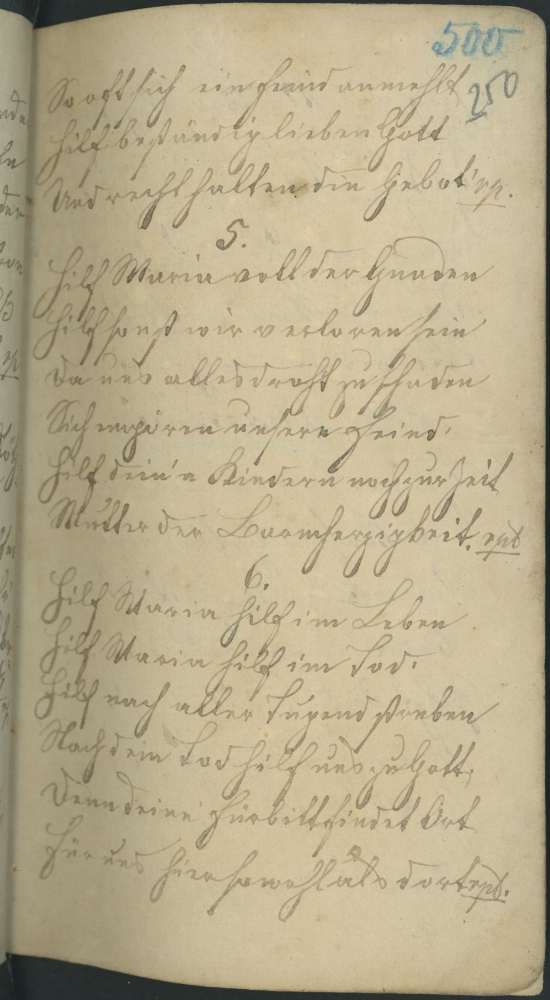 500
250
So oft sich ein Feind anmehlt
Hilf beständig lieben Gott
Und recht halten die Gebot' rp.
5.
Hilf Maria voll der Gnaden
Hilf sonst wir verloren sein
Da uns alles droht zu schaden
Sich empören unsere Feind,
Hilf dein'n Kindern noch zur Zeit
Mutter der Barmherzigkeit. rpt
6.
Hilf Maria hilf im Leben
Hilf Maria hilf im Tod.
Hilf nach aller Tugend streben
Nach dem Tod hilf uns zu Gott,
Denn deine Fürbitt findet Ort
Für uns hier sowohl als dort rpt.